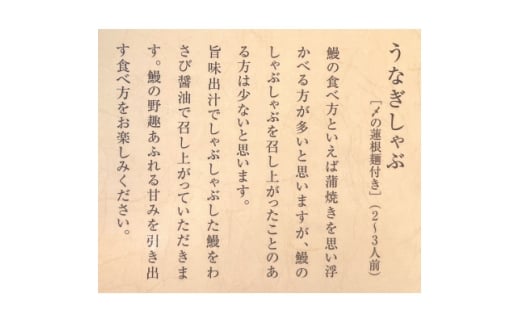 うなぎしゃぶ
［〆の蓮根麺付き］（２～３人前）
鰻の食べ方といえば蒲焼きを思い浮
かべる方が多いと思いますが、鰻の
しゃぶしゃぶを召し上がったことのあ
る方は少ないと思います。
旨味出汁でしゃぶしゃぶした鰻をわ
さび醤油で召し上がっていただきま
す。鰻の野趣あふれる甘みを引き出
す食べ方をお楽しみください。